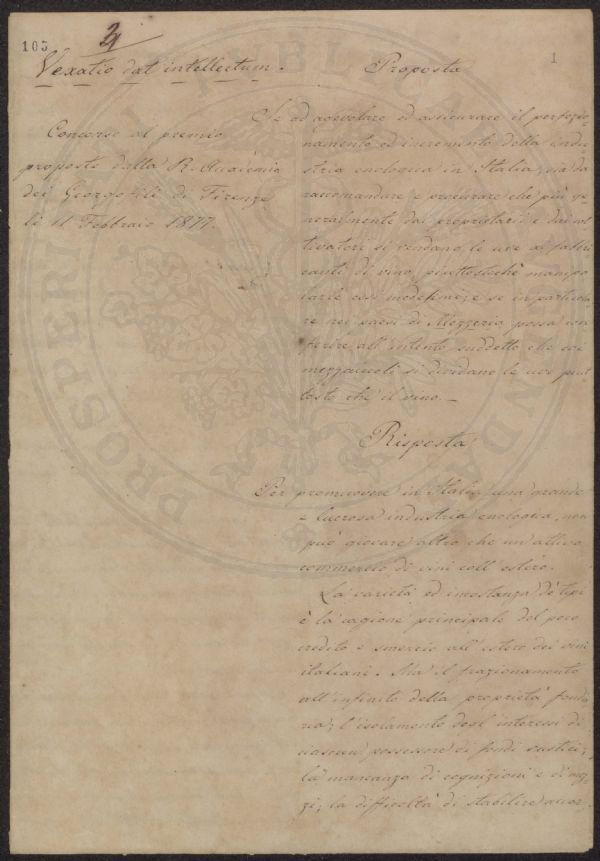 103
1
Vexatio dat intellectum.
Concorso al premio
proposto dalla R. Accademia
dei Georgofili di Firenze
li 11 Febbraio 1877.
Proposta
Se ad agevolare ed assicurare il perfezio-
namento ed incremento della indu-
stria enologica in Italia, sia da
raccomandare e procurare che più ge-
neralmente dai proprietarii e dai col-
tivatori si vendano le uve ai fabbri
canti di vino, piuttostochè manipo
larle essi medesimi; e se in particola
re nei paesi di Mezzeria possa con
ferire all'intento suddetto che coi
mezzaiuoli si dividano le uve piut
tosto che il vino._
Risposta
Per promuovere in Italia una grande
lucrosa industria enologica, non
può giovare altro che un attivo
commercio di vini coll'estero.
La varietà ed incostanza de' tipi
è la cagione principale del poco
credito e smercio all'estero dei vini
italiani. Ma il frazionamento
all'infinito della proprietà fondia
ria; l'isolamento degl'interessi di
ciascun possessore di fondi rustici;
la mancanza di cognizioni e di mez
zi; la difficoltà di stabilire accor.
PROSPERITATI PUBLICAE AUGENDAE